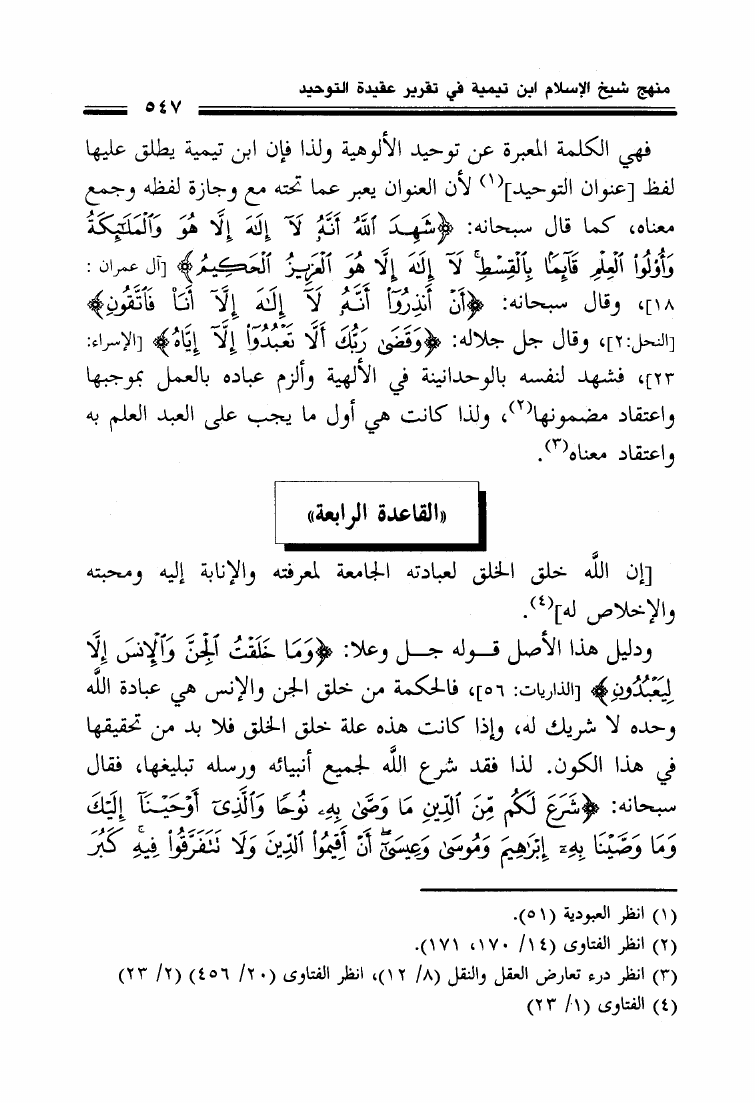 منهج شيخ الإسلام ابن تيمية في تقرير عقيدة التوحيد
٥٤٧
فهي الكلمة المعبرة عن توحيد الألوهية ولذا فإن ابن تيمية يطلق عليها
لفظ [عنوان التوحيد](١) لأن العنوان يعبر عما تحته مع وجازة لفظه وجمع
معناه، كما قال سبحانه: ﴿شَهِدَ ٱللَّهُ أَنَّهُۥ لَآ إِلَٰهَ إِلَّا هُوَ وَٱلْمَلَٰٓئِكَةُ
وَأُو۟لُوا۟ ٱلْعِلْمِ قَآئِمًۢا بِٱلْقِسْطِ ۚ لَآ إِلَٰهَ إِلَّا هُوَ ٱلْعَزِيزُ ٱلْحَكِيمُ﴾ [آل عمران :
١٨]، وقال سبحانه: ﴿أَنْ أَنذِرُوٓا۟ أَنَّهُۥ لَآ إِلَٰهَ إِلَّآ أَنَا۠ فَٱتَّقُونِ﴾
[النحل:٢]، وقال جل جلاله: ﴿وَقَضَىٰ رَبُّكَ أَلَّا تَعْبُدُوٓا۟ إِلَّآ إِيَّاهُ﴾ [الإسراء:
٢٣]، فشهد لنفسه بالوحدانية في الألهية وألزم عباده بالعمل بموجبها
واعتقاد مضمونها(٢)، ولذا كانت هي أول ما يجب على العبد العلم به
واعتقاد معناه(٣).
«القاعدة الرابعة»
[إن الله خلق الخلق لعبادته الجامعة لمعرفته والإنابة إليه ومحبته
والإخلاص له](٤).
ودليل هذا الأصل قوله جل وعلا: ﴿وَمَا خَلَقْتُ ٱلْجِنَّ وَٱلْإِنسَ إِلَّا
لِيَعْبُدُونِ﴾ [الذاريات: ٥٦]، فالحكمة من خلق الجن والإنس هي عبادة الله
وحده لا شريك له، وإذا كانت هذه علة خلق الخلق فلا بد من تحقيقها
في هذا الكون. لذا فقد شرع الله لجميع أنبيائه ورسله تبليغها، فقال
سبحانه: ﴿شَرَعَ لَكُم مِّنَ ٱلدِّينِ مَا وَصَّىٰ بِهِۦ نُوحًا وَٱلَّذِىٓ أَوْحَيْنَآ إِلَيْكَ
وَمَا وَصَّيْنَا بِهِۦٓ إِبْرَٰهِيمَ وَمُوسَىٰ وَعِيسَىٰٓ ۖ أَنْ أَقِيمُوا۟ ٱلدِّينَ وَلَا تَتَفَرَّقُوا۟ فِيهِ ۚ كَبُرَ
(١) انظر العبودية (٥١).
(٢) انظر الفتاوى (١٤/ ١٧٠، ١٧١).
(٣) انظر درء تعارض العقل والنقل (٨/ ١٢)، انظر الفتاوى (٢٠/ ٤٥٦) (٢/ ٢٣)
(٤) الفتاوى (١/ ٢٣)